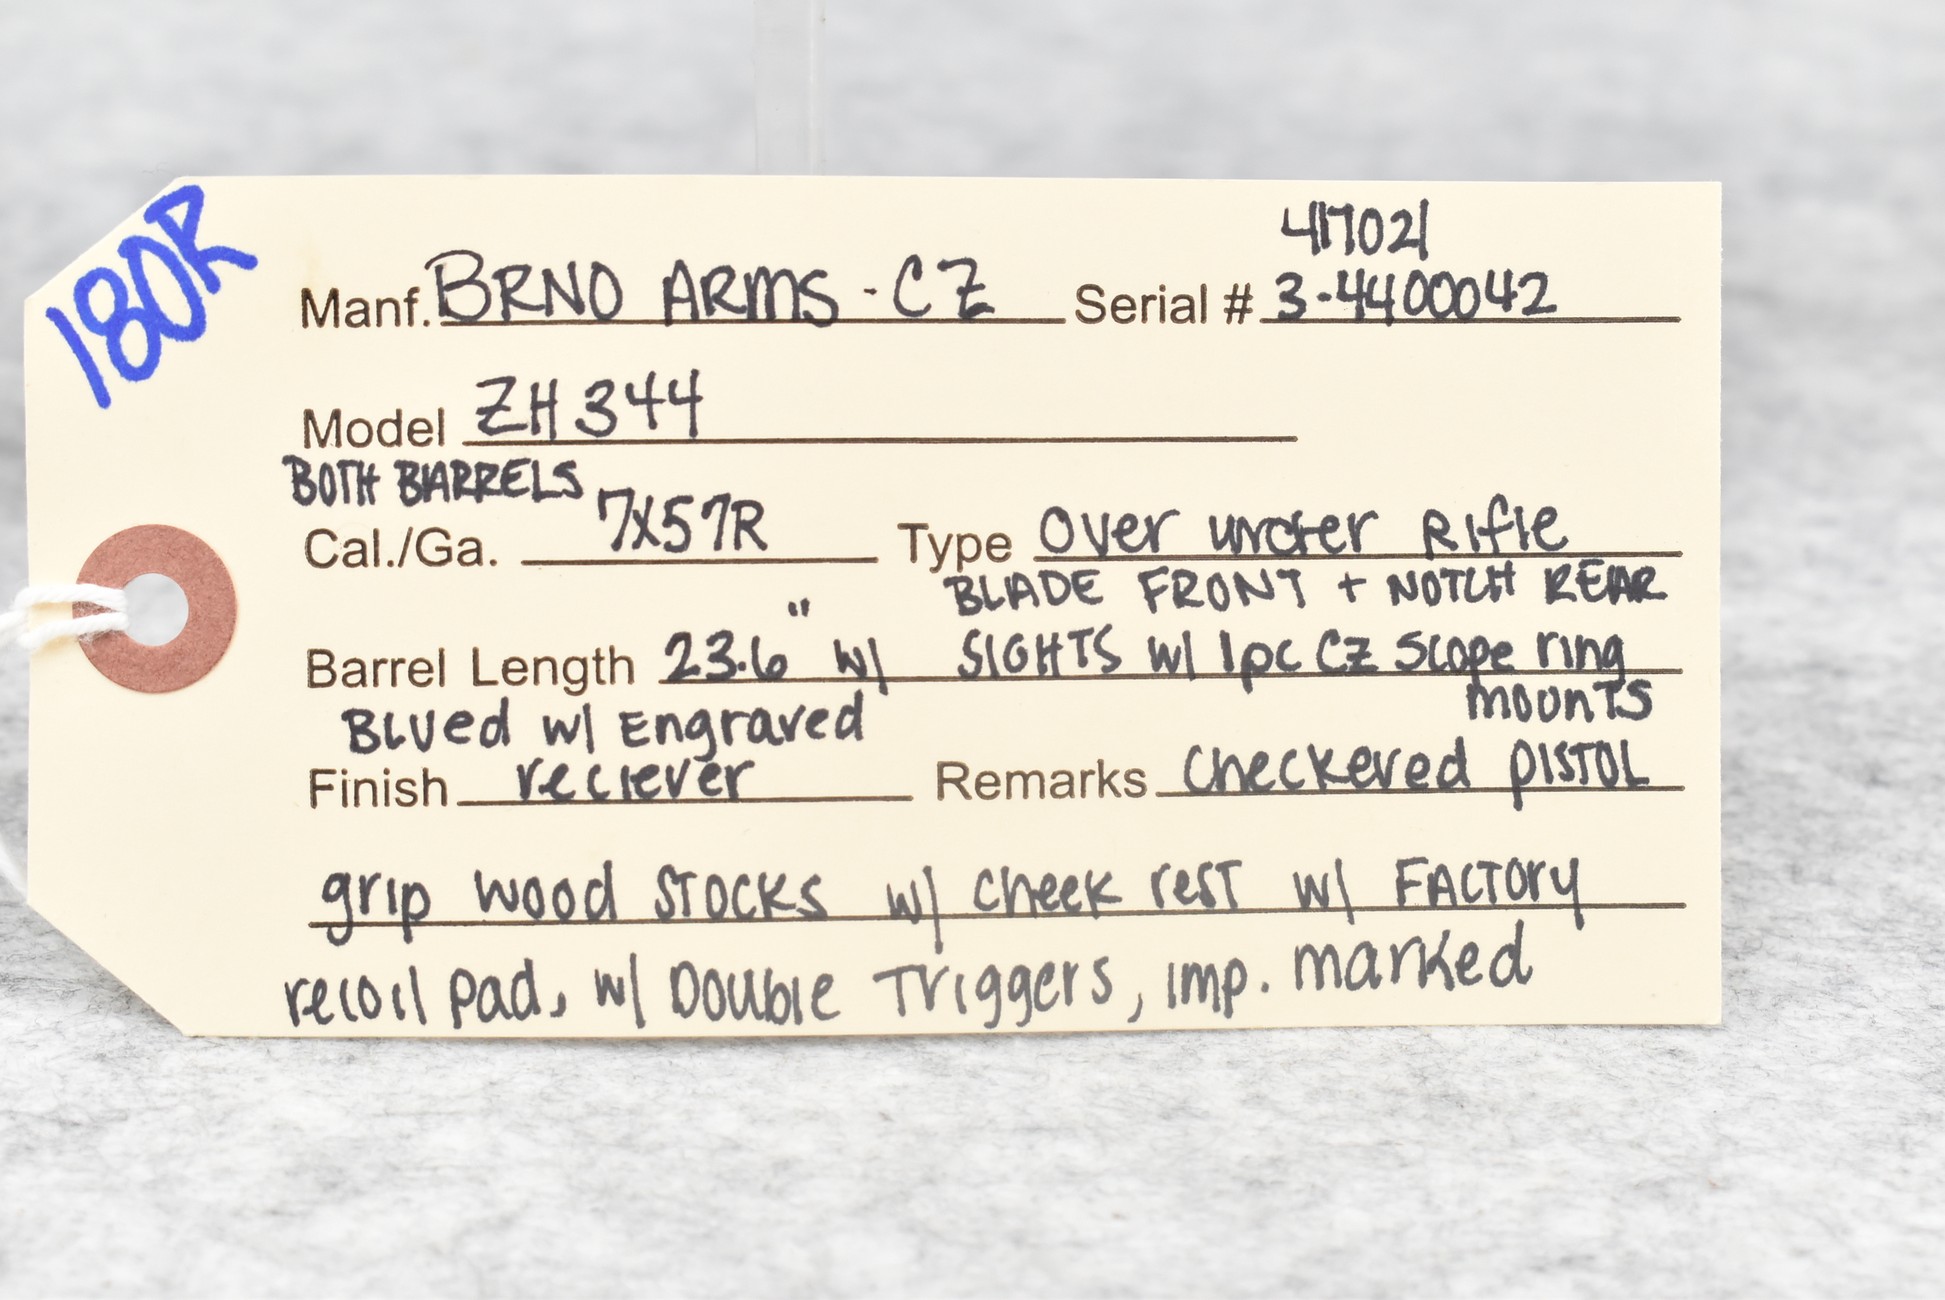 180R
417021
Manf. BRNO ARMS - CZ Serial # 3-4400042
Model ZH 344
BOTH BARRELS
Cal./Ga. 7x57R Type Over under Rifle
BLADE FRONT + NOTCH REAR
Barrel Length 23.6" w/ SIGHTS w/ 1pc CZ Scope ring
mounts
Blued w/ Engraved
Finish reciever Remarks Checkered PISTOL
grip wood STOCKS w/ cheek rest w/ FACTORY
recoil pad, w/ Double Triggers, imp. marked